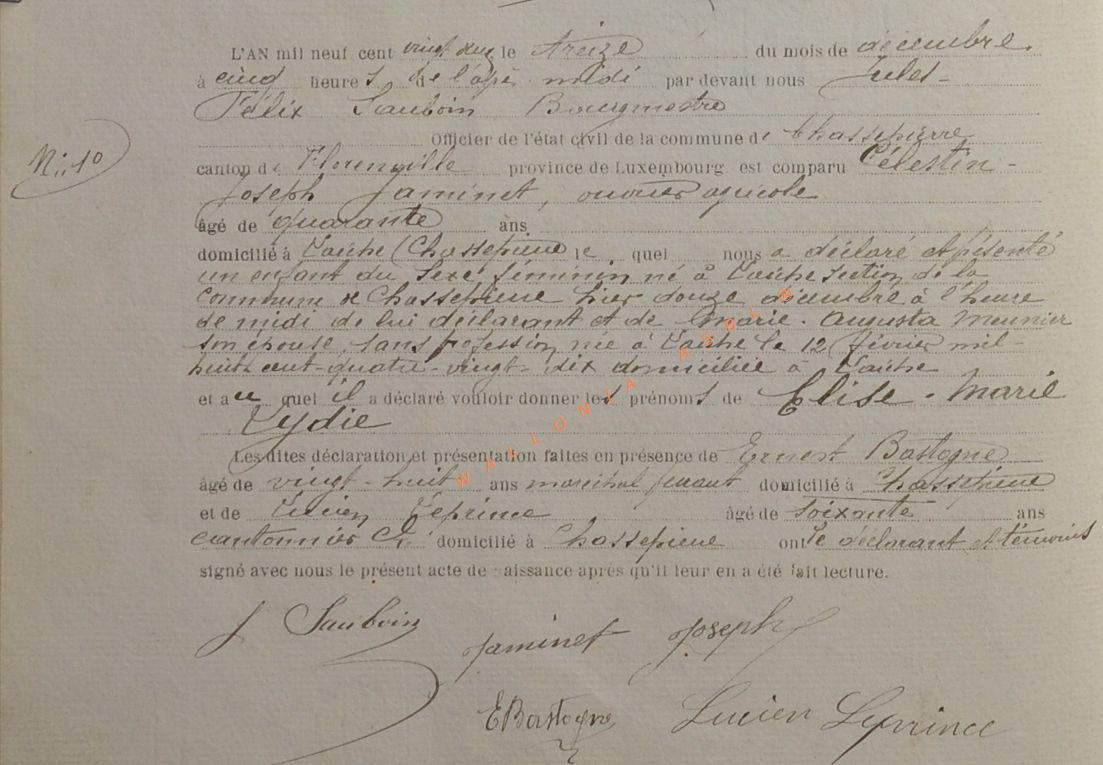 L'AN mil neuf cent vingt deux le treize du mois de décembre
à cinq heures de l'après midi par devant nous Jules-
Félix Sauboin Bourgmestre
Officier de l'état civil de la commune de Chassepierre
N: 10
canton de Florenville province de Luxembourg est comparu Célestin-
Joseph Jaminet, ouvrier agricole
âgé de quarante ans
domicilié à Laiche (Chassepierre) le quel nous a déclaré et présenté
un enfant du sexe féminin né à Laiche section de la
Commune de Chassepierre hier douze décembre à l'heure
de midi de lui déclarant et de Marie-Augusta Meunier
son épouse, sans profession née à Laiche le 12 février mil-
huit-cent-quatre-vingt-dix domiciliée à Laiche
et a quel il a déclaré vouloir donner les prénoms de Elise-Marie
Lydie
Les dites déclaration et présentation faites en présence de Ernest Bastogne
âgé de vingt-huit ans maréchal ferrant domicilié à Chassepierre
et de Lucien Leprince âgé de soixante ans
cantonnier domicilié à Chassepierre ont le déclarant et témoins
signé avec nous le présent acte de naissance après qu'il leur en a été fait lecture.
J Sauboin
Jaminet Joseph
EBastogne Lucien Leprince
WALLONIA ASBL ©